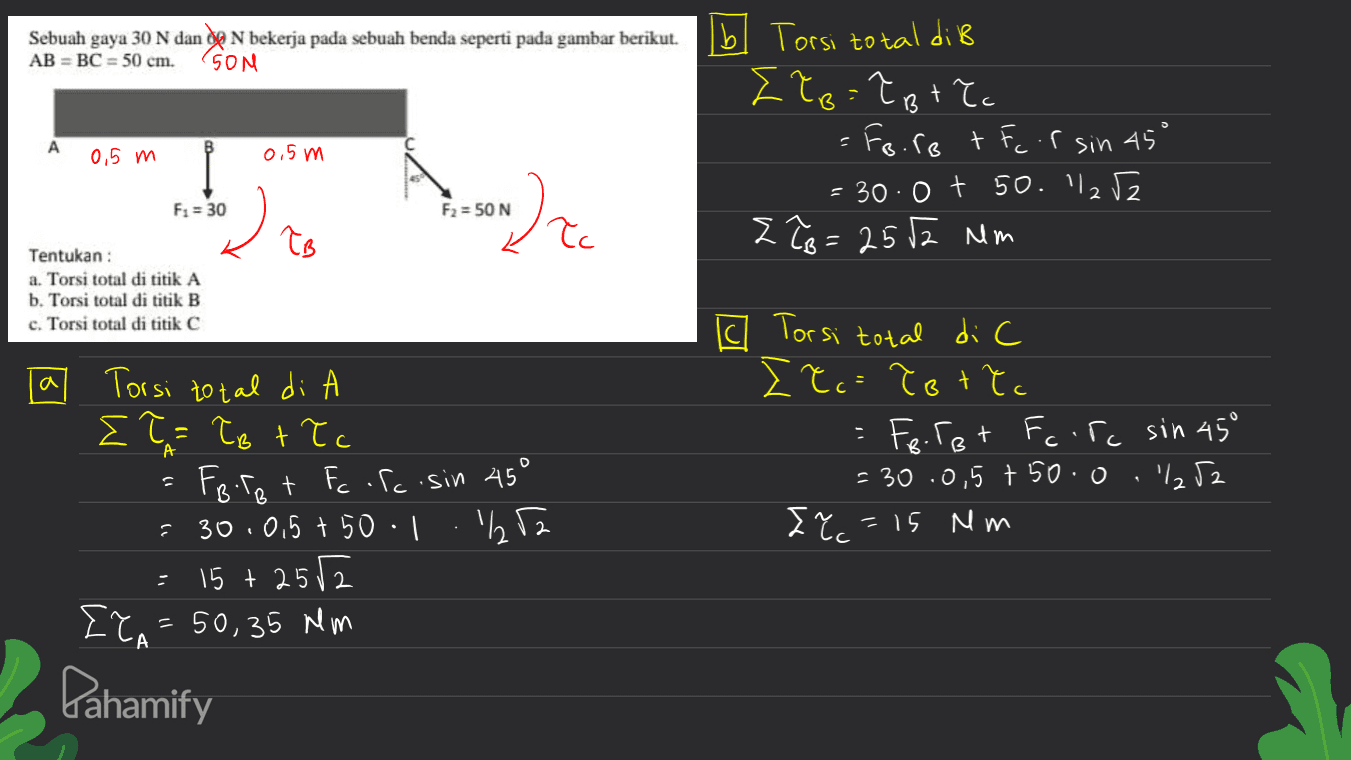 Sebuah gaya 30 N dan 60 N bekerja pada sebuah benda seperti pada gambar berikut.
AB = BC = 50 cm.
50 N
A
B
C
0,5 m
0,5 m
45°
F₁ = 30
F₂ = 50 N
τB
τc
Tentukan :
a. Torsi total di titik A
b. Torsi total di titik B
c. Torsi total di titik C
a Torsi total di A
Στ_A = τB + τc
= FB.rB + Fc.rc.sin 45°
= 30.0,5 + 50.1 . 1/2 √2
= 15 + 25√2
Στ_A = 50,35 Nm
b Torsi total di B
ΣτB = τB + τc
= FB.rB + Fc.r sin 45°
= 30.0 + 50. 1/2 √2
ΣτB = 25√2 Nm
c Torsi total di C
Στc = τB + τc
= FB.rB + Fc.rc sin 45°
= 30.0,5 + 50.0 . 1/2 √2
Στc = 15 Nm
Pahamify